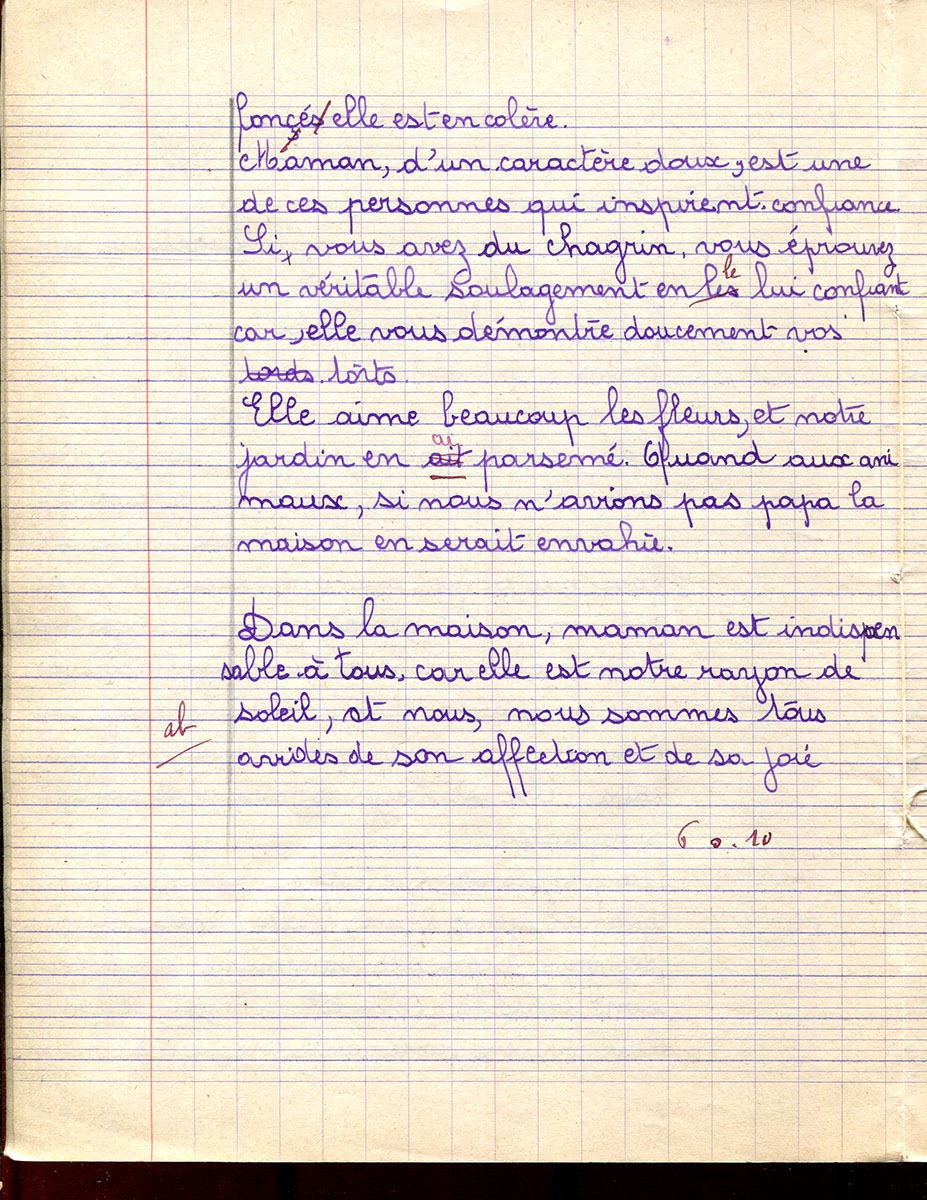 foncés elle est en colère.
Maman, d'un caractère doux, est une
de ces personnes qui inspirent. confiance
Si, vous avez du chagrin, vous éprouvez
un véritable soulagement en les le lui confiant
car, elle vous démontre doucement vos
tords. torts.
Elle aime beaucoup les fleurs, et notre
jardin en ait ai parsemé. Quand aux ani
maux, si nous n'avions pas papa la
maison en serait envahie.
Dans la maison, maman est indispen
sable à tous, car elle est notre rayon de
soleil, et nous, nous sommes tous
ab
avides de son affection et de sa joie
6 s. 10